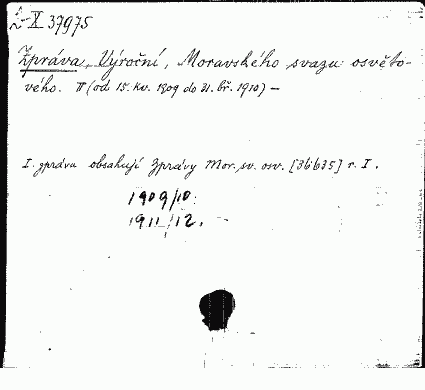 2-X 37975
Zpráva, Výroční, Moravského svazu osvěto-
vého. II (od 15. kv. 1909 do 31. bř. 1910) —
I. zpráva obsahují Zprávy Mor. sv. osv. [36635] r. I.
1909/10.
1911/12.